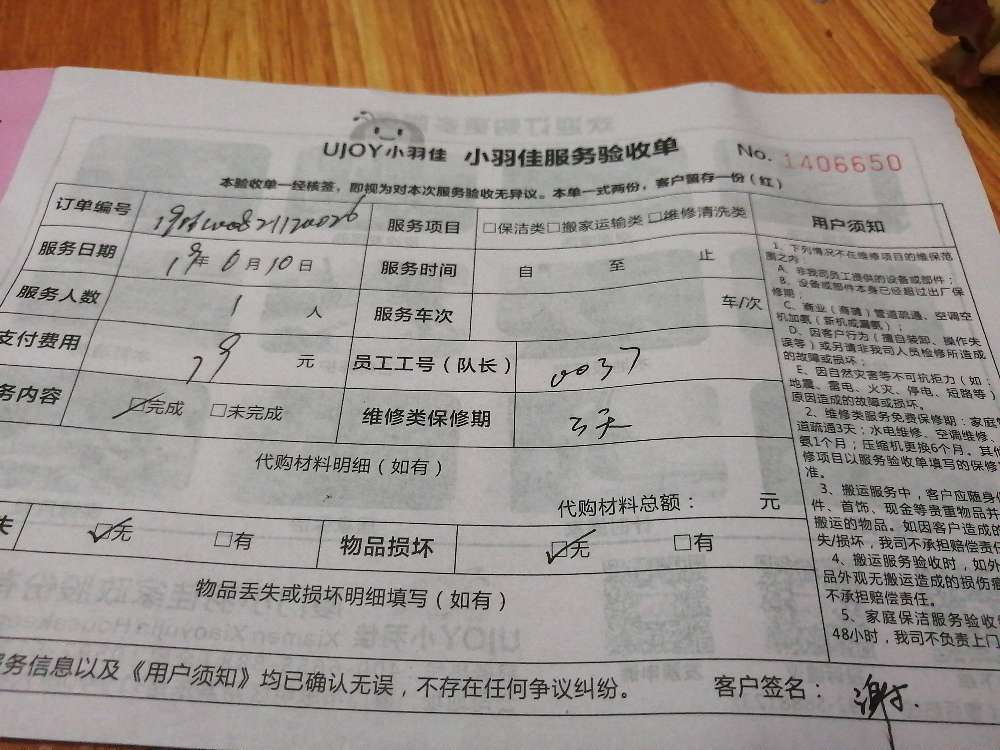 UJOY小羽佳 小羽佳服务验收单 No. 1406650
本验收单一经核签，即视为对本次服务验收无异议。本单一式两份，客户留存一份（红）
订单编号 服务项目 □保洁类□搬家运输类□维修清洗类
服务日期 19年6月10日 服务时间 自 至 止
服务人数 1 人 服务车次 车/次
支付费用 79 元 员工工号（队长） 0037
务内容 □完成 □未完成 维修类保修期 3天
代购材料明细（如有）
代购材料总额： 元
失 □无 □有 物品损坏 □无 □有
物品丢失或损坏明细填写（如有）
服务信息以及《用户须知》均已确认无误，不存在任何争议纠纷。 客户签名：
用户须知
1、下列情况不在维修项目的维保范
围之内：
A、非我司员工提供的设备或部件；
B、设备或部件本身已经超过出厂保
修期；
C、商业（商铺）管道疏通、空调空
机加氨（新机或漏氨）；
D、因客户行为（擅自装卸、操作失
误等）或另请非我司人员检修所造成
的故障或损坏；
E、因自然灾害等不可机拒力（如：
地震、雷电、火灾、停电、短路等）
原因造成的故障或损坏。
2、维修类服务免费保修期：家庭管
道疏通3天；水电维修、空调维修、
氨1个月；压缩机更换6个月。其他
修项目以服务验收单填写的保修
准。
3、搬运服务中，客户应随身
件、首饰、现金等贵重物品并
搬运的物品。如因客户造成的
失/损坏，我司不承担赔偿责任
4、搬运服务验收时，如外
品外观无搬运造成的损伤
不承担赔偿责任。
5、家庭保洁服务验收
48小时，我司不负责上门